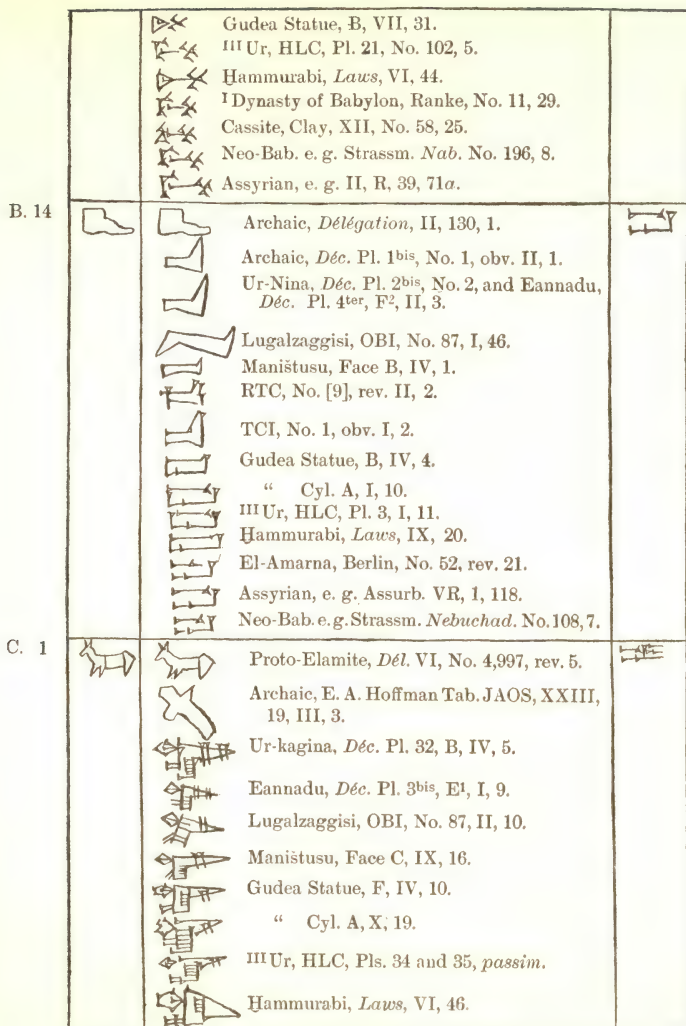 Gudea Statue, B, VII, 31.
III Ur, HLC, Pl. 21, No. 102, 5.
Ḫammurabi, Laws, VI, 44.
I Dynasty of Babylon, Ranke, No. 11, 29.
Cassite, Clay, XII, No. 58, 25.
Neo-Bab. e. g. Strassm. Nab. No. 196, 8.
Assyrian, e. g. II, R, 39, 71a.
B. 14
Archaic, Délégation, II, 130, 1.
Archaic, Déc. Pl. 1bis, No. 1, obv. II, 1.
Ur-Nina, Déc. Pl. 2bis, No. 2, and Eannadu,
Déc. Pl. 4ter, F², II, 3.
Lugalzaggisi, OBI, No. 87, I, 46.
Maništusu, Face B, IV, 1.
RTC, No. [9], rev. II, 2.
TCI, No. 1, obv. I, 2.
Gudea Statue, B, IV, 4.
“ Cyl. A, I, 10.
III Ur, HLC, Pl. 3, I, 11.
Ḫammurabi, Laws, IX, 20.
El-Amarna, Berlin, No. 52, rev. 21.
Assyrian, e. g. Assurb. VR, 1, 118.
Neo-Bab. e. g. Strassm. Nebuchad. No. 108, 7.
C. 1
Proto-Elamite, Dél. VI, No. 4,997, rev. 5.
Archaic, E. A. Hoffman Tab. JAOS, XXIII,
19, III, 3.
Ur-kagina, Déc. Pl. 32, B, IV, 5.
Eannadu, Déc. Pl. 3bis, E¹, I, 9.
Lugalzaggisi, OBI, No. 87, II, 10.
Maništusu, Face C, IX, 16.
Gudea Statue, F, IV, 10.
“ Cyl. A, X, 19.
III Ur, HLC, Pls. 34 and 35, passim.
Ḫammurabi, Laws, VI, 46.